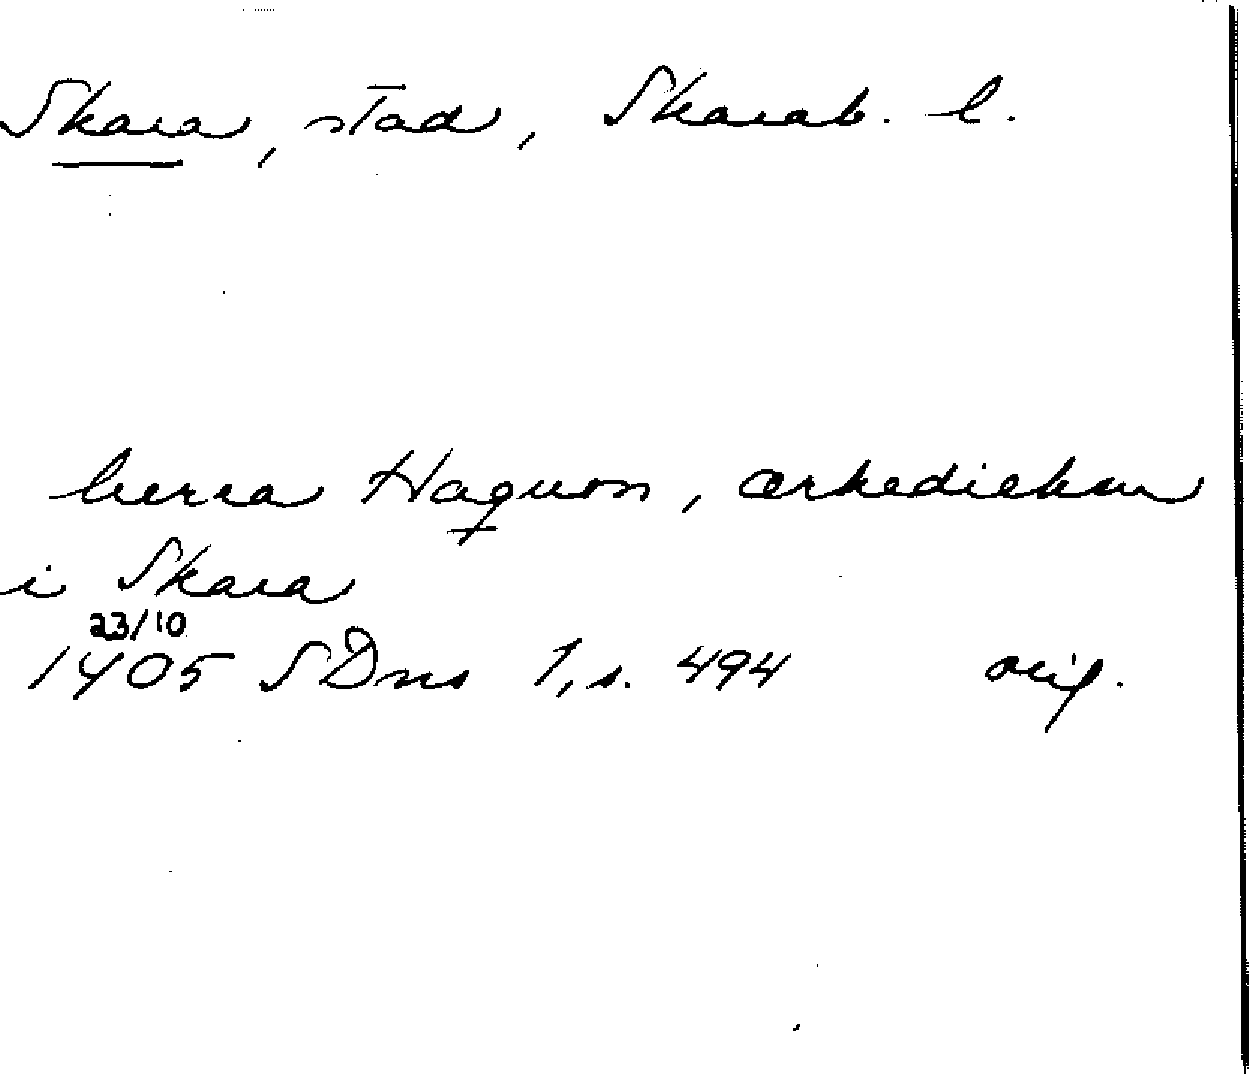 Skara, stad, Skarab. l.
herra Haquon, ærkediekn
i Skara
23/10
1405 SDns 1, s. 494 orig.